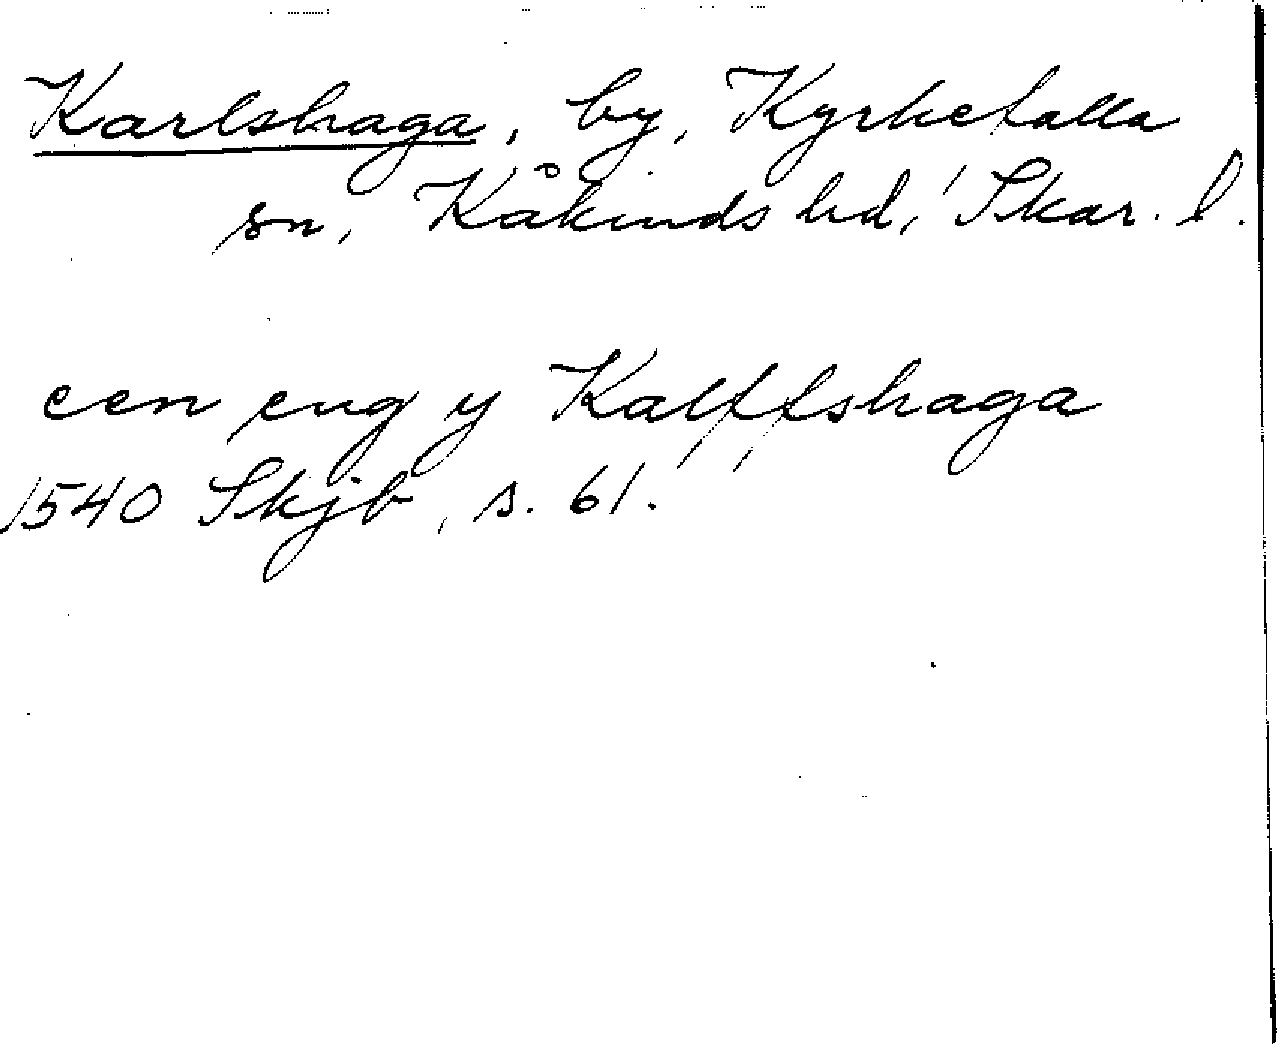 Karlshaga, by, Kyrkefalla
sn, Kåkinds hd, Skar. l.
een eng y Kalffshaga
1540 Skjb, s. 61.